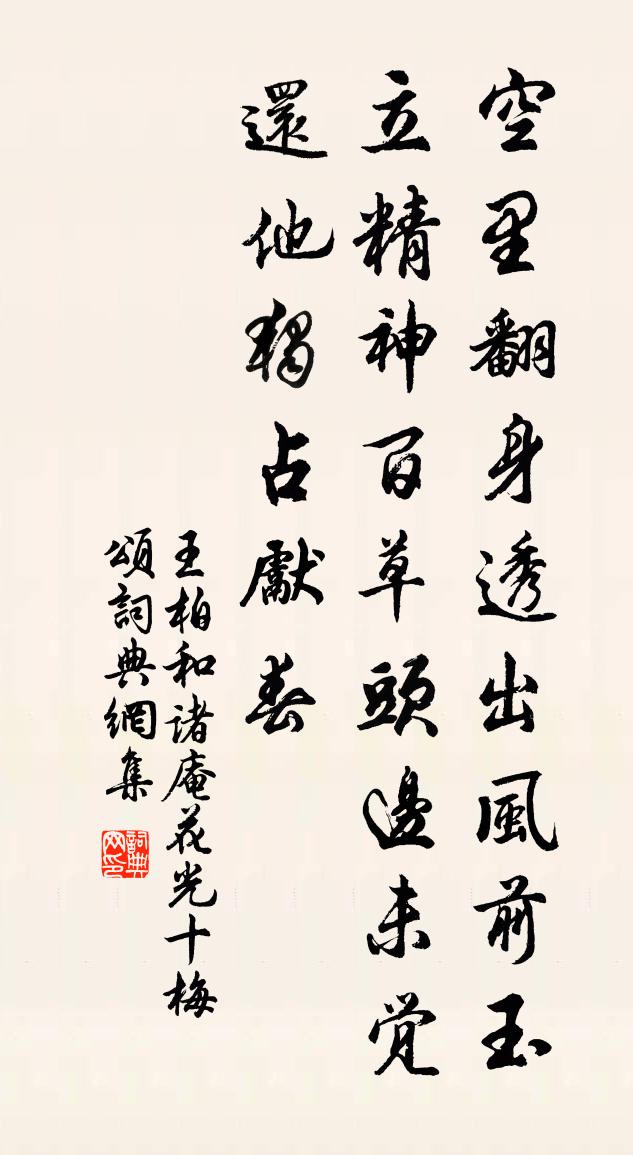 空里翻身透出風前玉
立精神百草頭邊未觉
還他獨占獻春
王柏和諸庵花光十梅
頌詞典網集
詞典网印